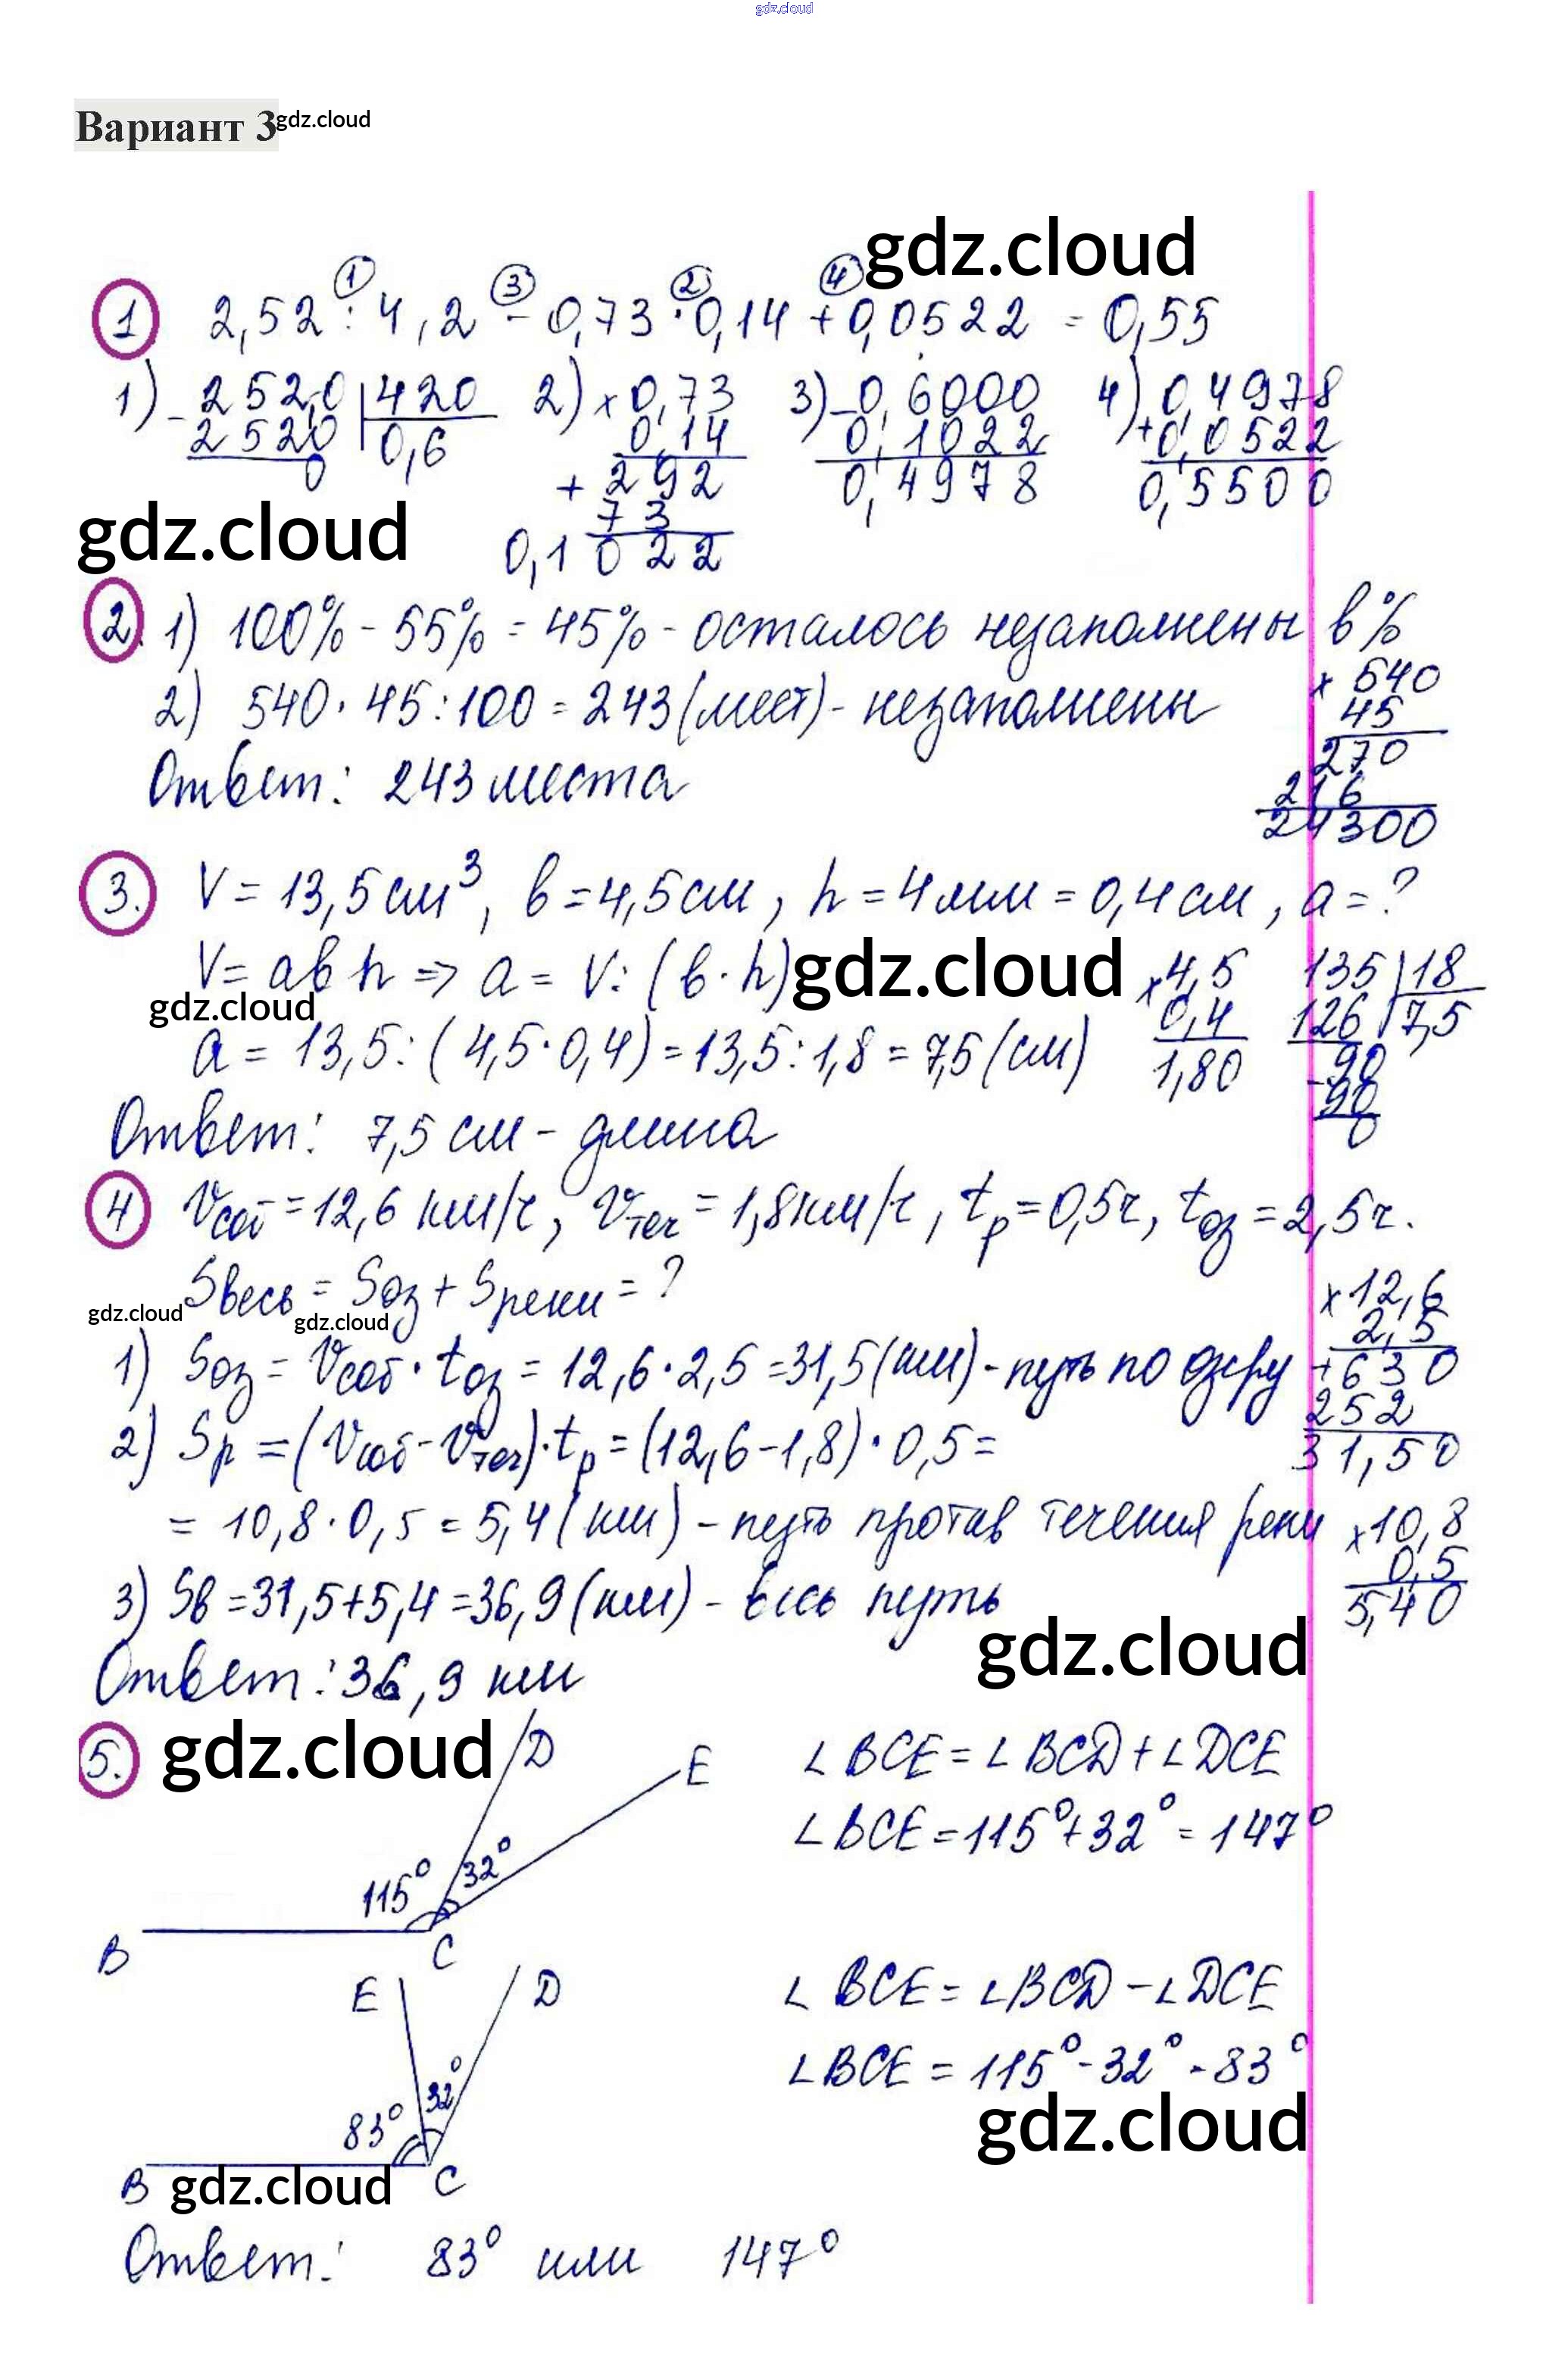 gdz.cloud
Вариант 3 gdz.cloud
gdz.cloud
① ③ ② ④
1 2,52 : 4,2 - 0,73 · 0,14 + 0,0522 = 0,55
1) - 252,0 | 420 2) × 0,73 3) - 0,6000 4) 0,4978
252,0 | 0,6 0,14 0,1022 + 0,0522
0 + 292 0,4978 0,5500
73
0,1022
gdz.cloud
2. 1) 100% - 55% = 45% - осталось незаполнены в %
2) 540 · 45 : 100 = 243 (мест) - незаполнены
× 540
45
270
216
24300
Ответ: 243 места
3. V = 13,5 см³, в = 4,5 см, h = 4 мм = 0,4 см, a = ?
V = a в h => a = V : (в · h) gdz.cloud × 4,5 135 | 18
gdz.cloud 0,4 126 | 7,5
a = 13,5 : (4,5 · 0,4) = 13,5 : 1,8 = 7,5 (см) 1,80 - 90
90
0
Ответ: 7,5 см - длина
4 Vсоб = 12,6 км/ч, Vтеч = 1,8 км/ч, tр = 0,5 ч, tоз = 2,5 ч.
Sвесь = Sоз + Sреки = ?
gdz.cloud gdz.cloud
× 12,6
2,5
1) Sоз = Vсоб · tоз = 12,6 · 2,5 = 31,5 (км) - путь по озеру + 630
252
2) Sр = (Vсоб - Vтеч) · tр = (12,6 - 1,8) · 0,5 = 31,50
= 10,8 · 0,5 = 5,4 (км) - путь против течения реки × 10,8
0,5
3) Sв = 31,5 + 5,4 = 36,9 (км) - весь путь 5,40
gdz.cloud
Ответ: 36,9 км
5. gdz.cloud D E ∠BCE = ∠BCD + ∠DCE
115° 32° ∠BCE = 115° + 32° = 147°
B C
E D ∠BCE = ∠BCD - ∠DCE
83° 32° ∠BCE = 115° - 32° = 83°
gdz.cloud
B gdz.cloud C
Ответ: 83° или 147°